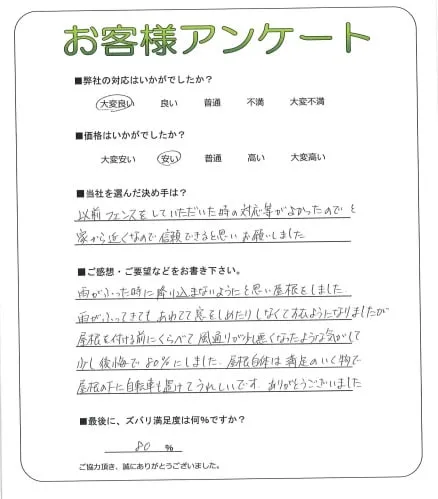 お客様アンケート
■弊社の対応はいかがでしたか?
大変良い 良い 普通 不満 大変不満
■価格はいかがでしたか?
大変安い 安い 普通 高い 大変高い
■当社を選んだ決め手は?
以前フェンスをしていただいた時の対応等がよかったのでと
家から近くなので信頼できると思いお願いしました
■ご感想・ご要望などをお書き下さい。
雨がふった時に降り込まないようにと思い屋根をしました
雨がふってきてもあわてて窓をしめたりしなくて よいようになりましたが
屋根を付ける前にくらべて風通りが少し悪くなったような気がして
少し後悔で80%にしました。屋根自体は満足のいく物で
屋根の下に自転車も置けてうれしいです。ありがとうございました
■最後に、ズバリ満足度は何%ですか?
80 %
ご協力頂き、誠にありがとうございました。